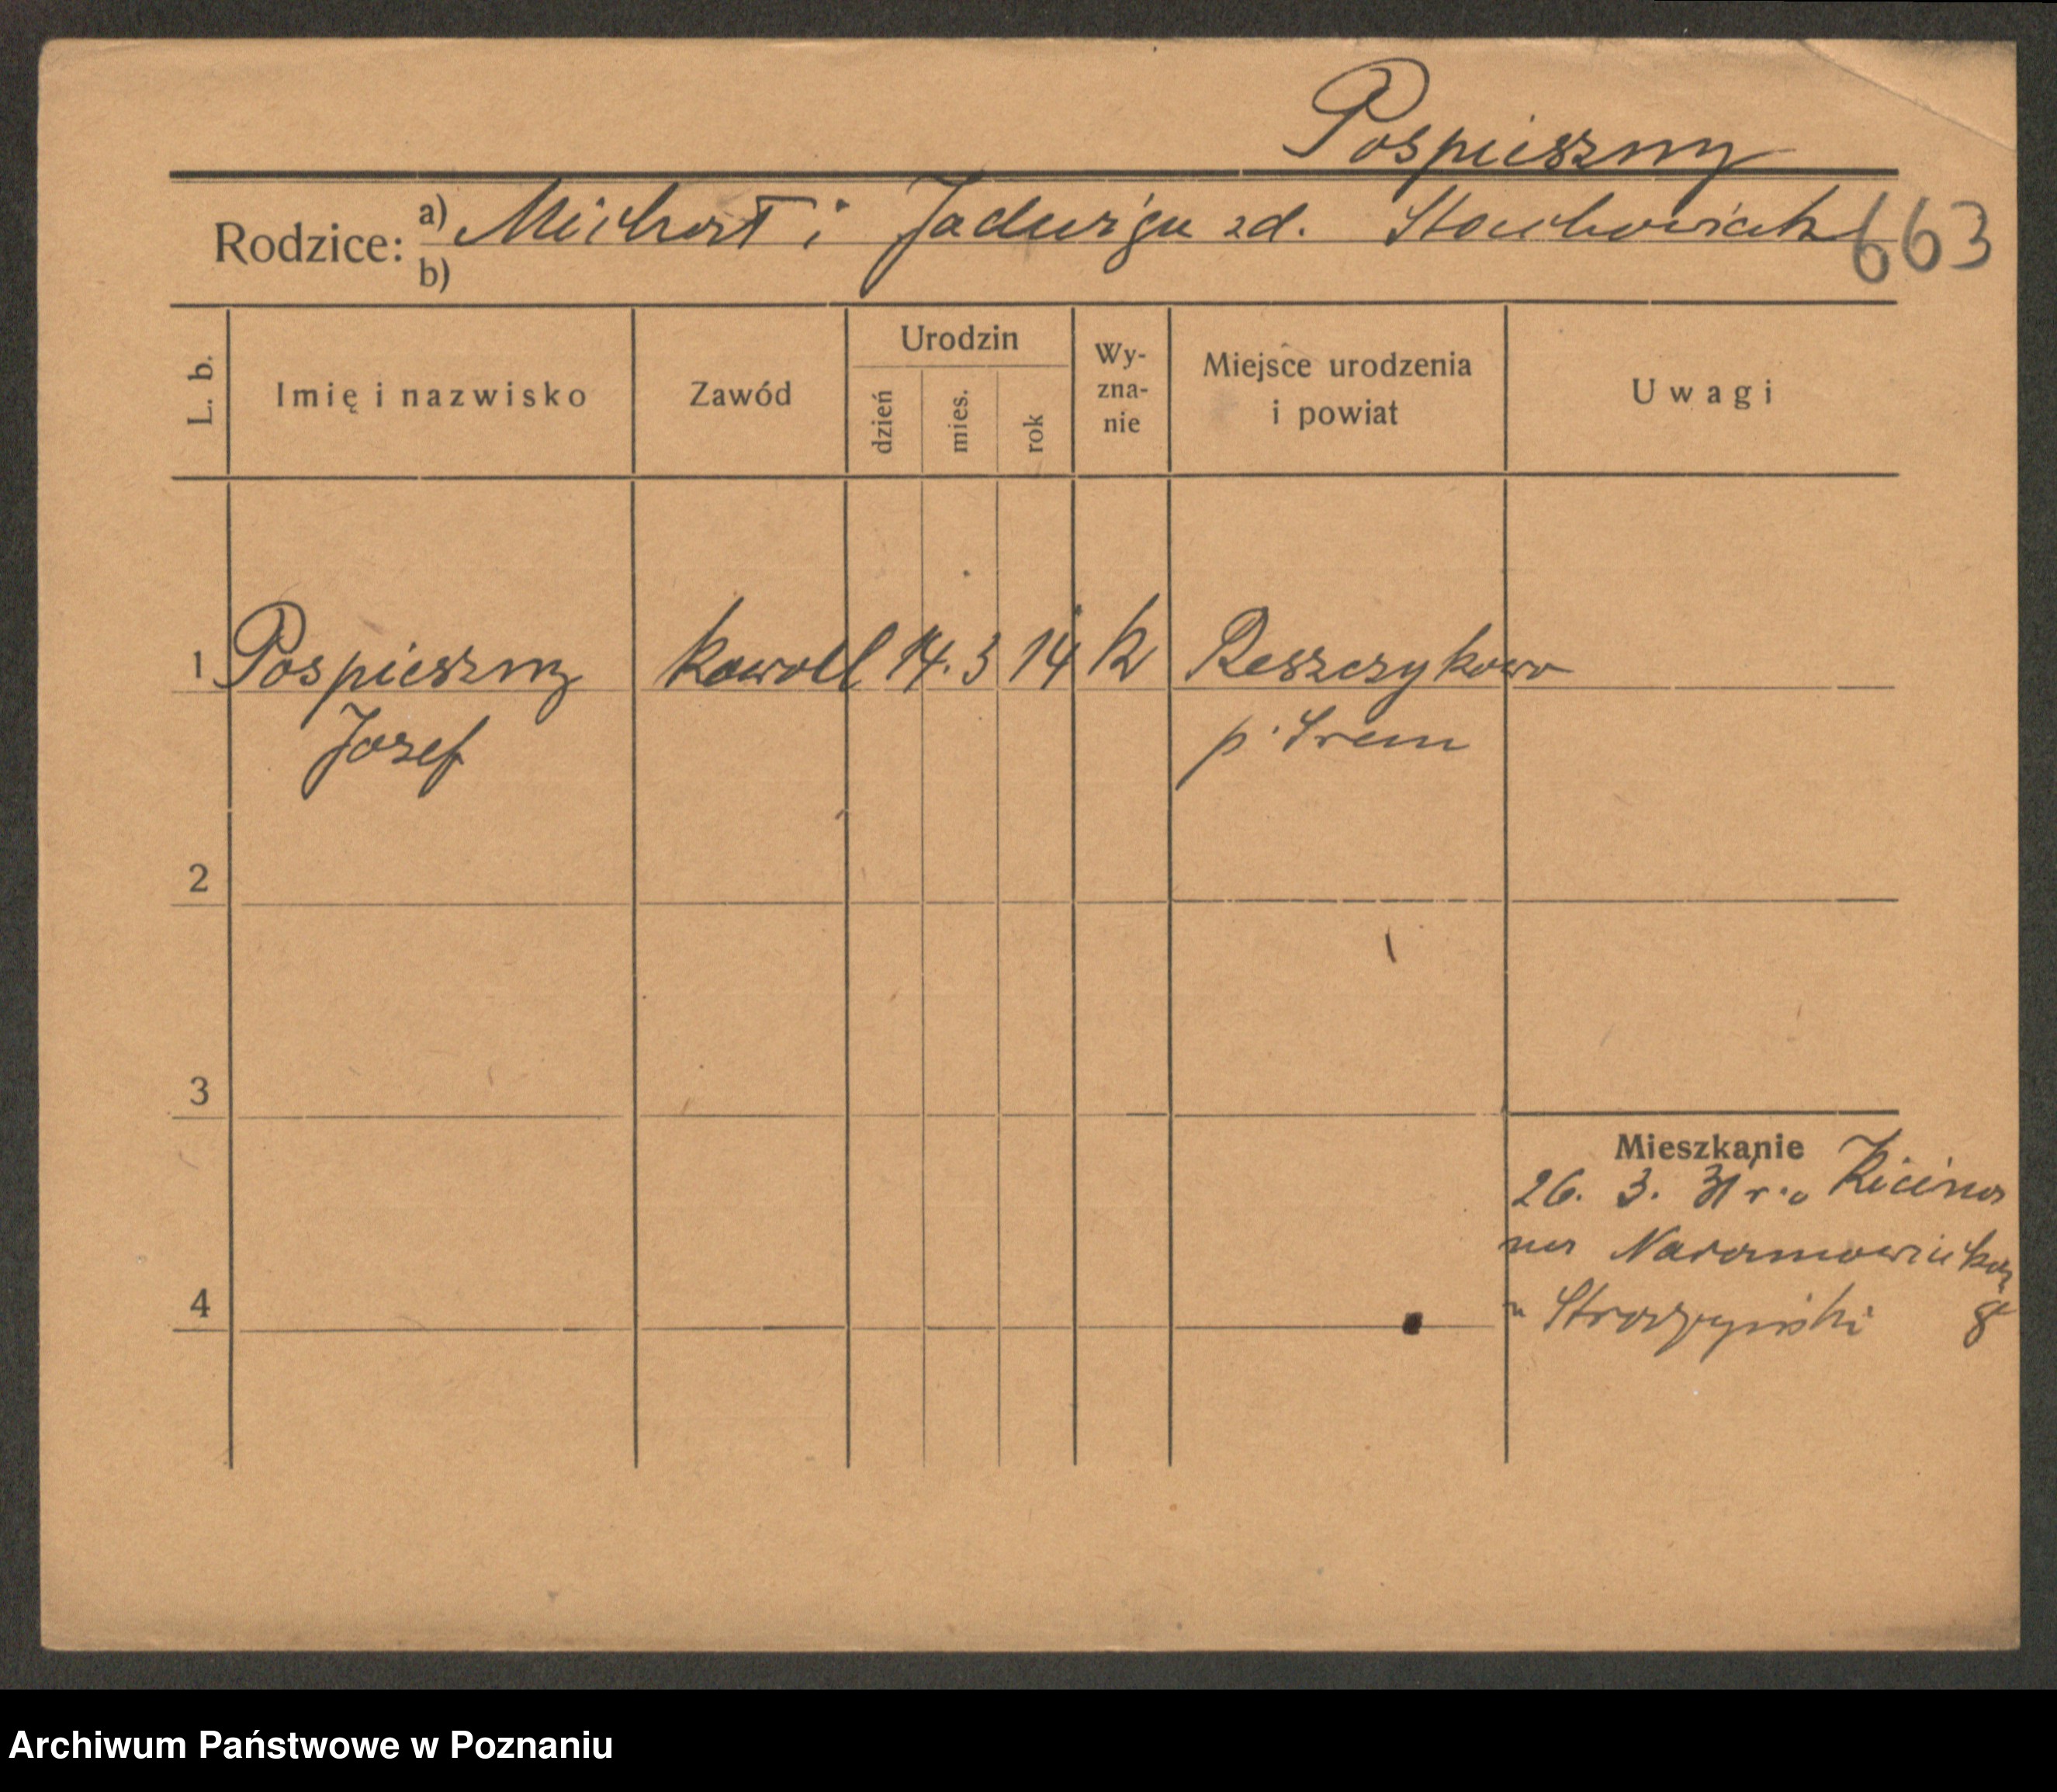 Pospieszny
Rodzice: a) Michał i Jadwiga zd. Stachowiak 663
b)
L. b. Imię i nazwisko Zawód Urodzin dzień mies. rok Wy-zna-nie Miejsce urodzenia i powiat Uwagi
1 Pospieszny kowal 14. 3 14 k Peszczykowo
Józef p. Srem
2
3
Mieszkanie
26. 3. 31 r. z Kicina
na Naramowicką
4 u Stroszyński 8
Archiwum Państwowe w Poznaniu